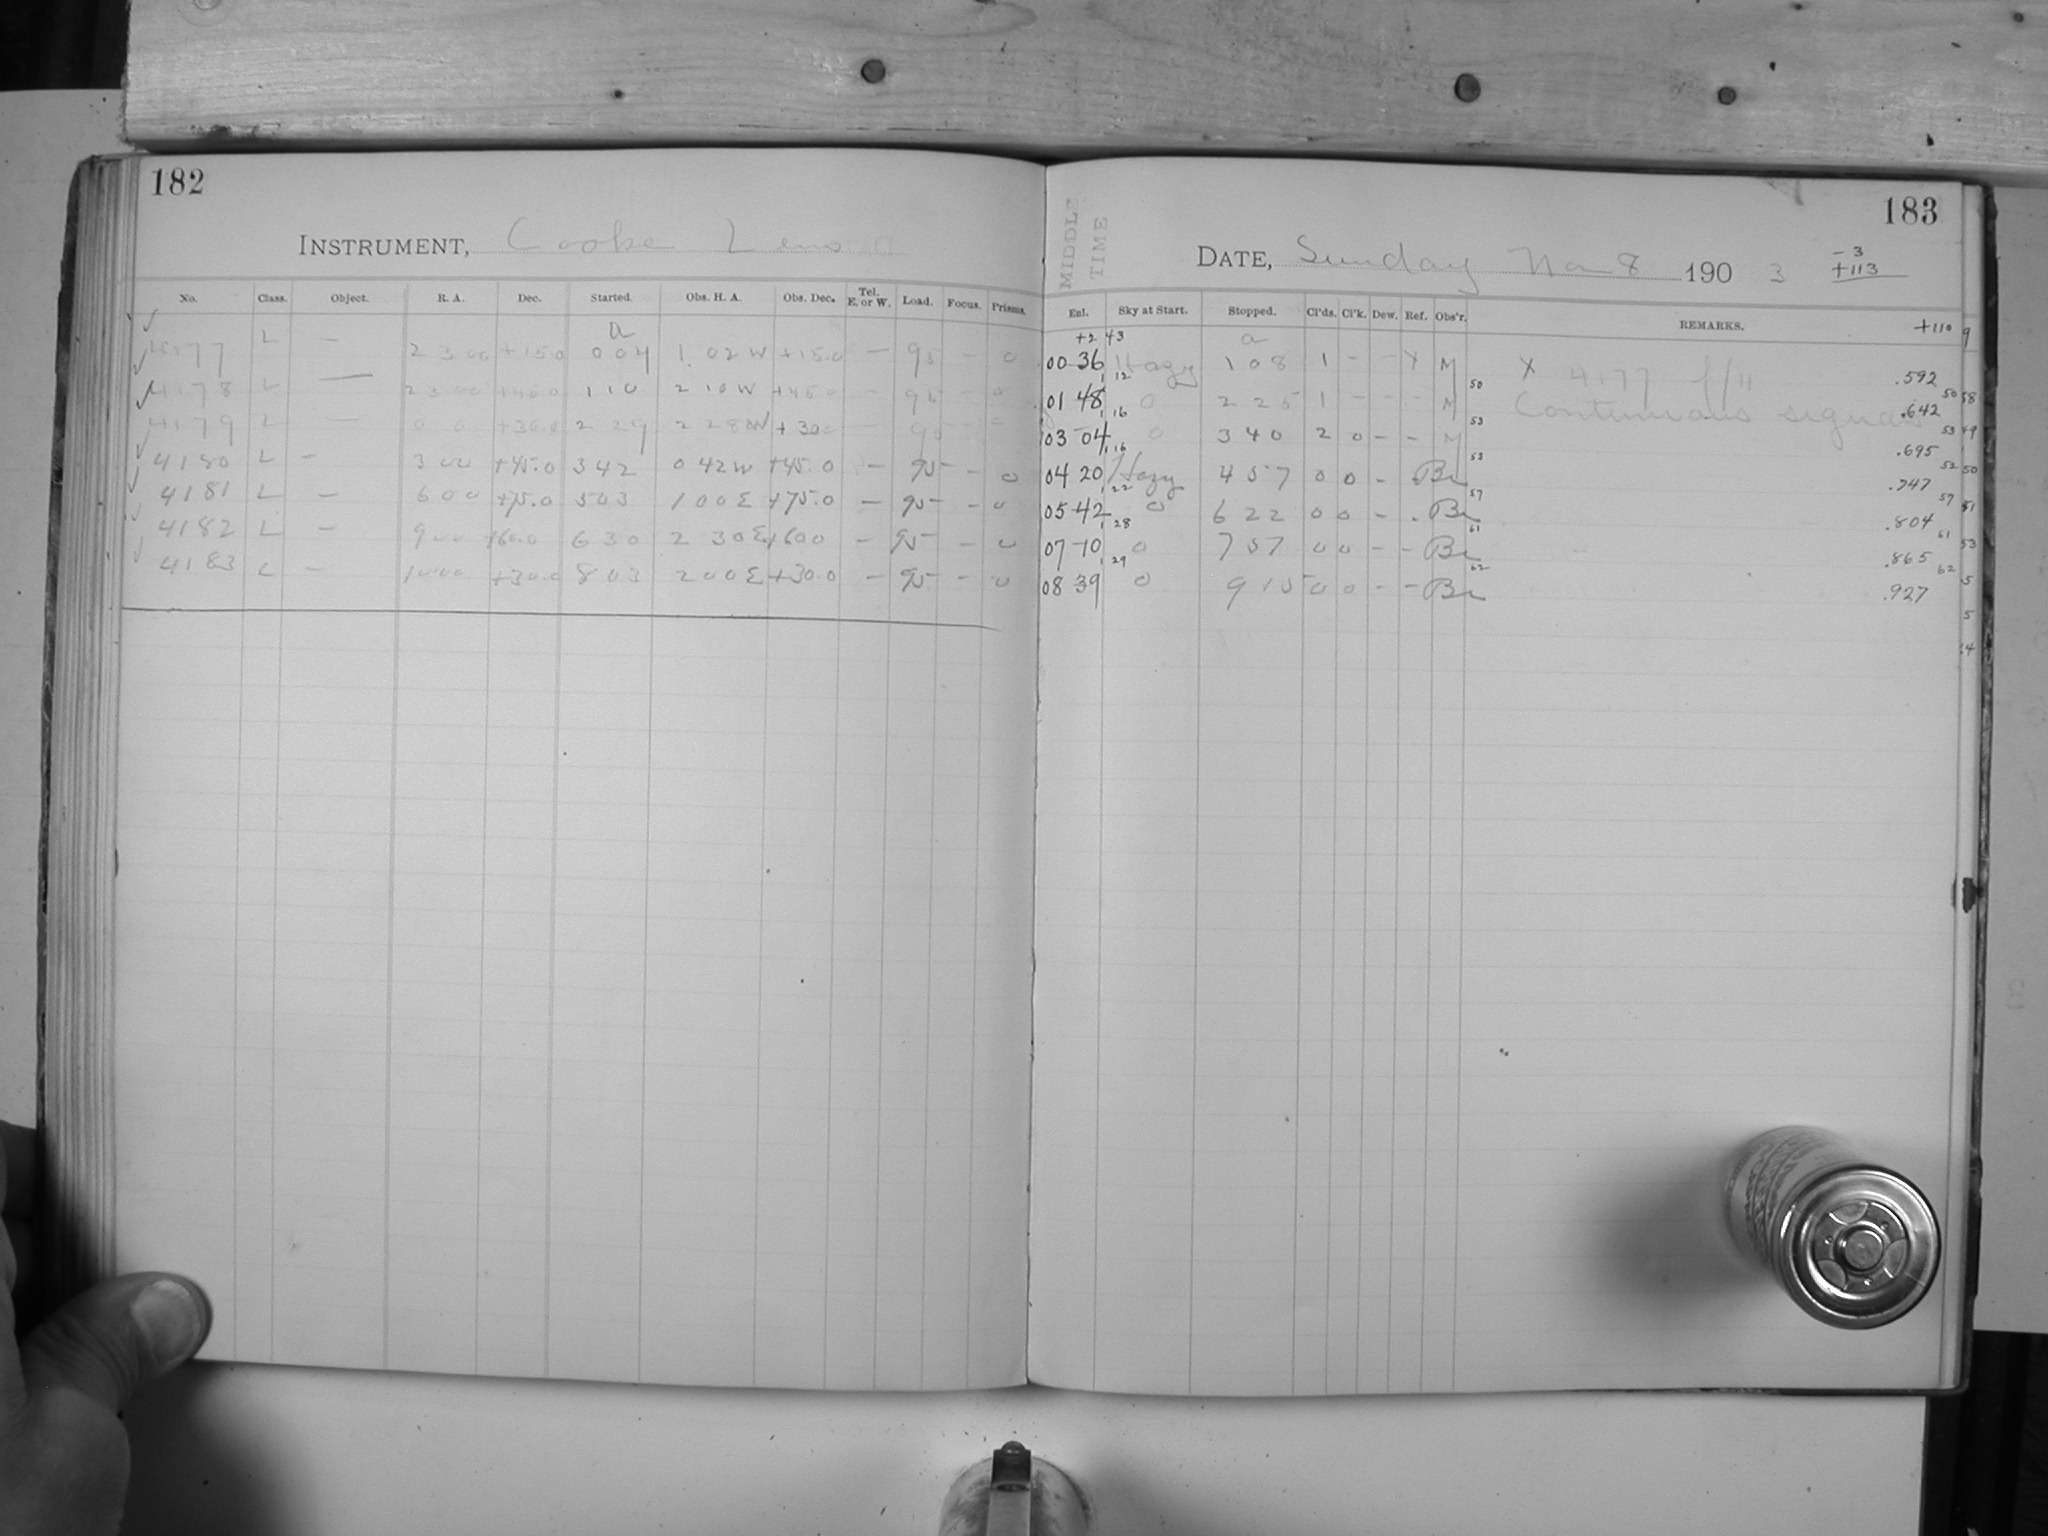 182
INSTRUMENT, Cooke Lens
No. Class. Object. R. A. Dec. Started. Obs. H. A. Obs. Dec. Tel. E. or W. Load. Focus. Prisms.
a
4177 L — 23 00 +15.0 0 04 1 02 W +15.0 — 95 — 0
4178 L — 23 00 +45.0 1 10 2 10 W +45.0 — 95 — 0
4179 L — 0 0 +30.0 2 29 2 28 W +30.0 — 95 — 0
4180 L — 3 00 +45.0 3 42 0 42 W +45.0 — 95 — 0
4181 L — 6 00 +75.0 5 03 1 00 E +75.0 — 95 — 0
4182 L — 9 00 +60.0 6 30 2 30 E +60.0 — 95 — 0
4183 L — 10 00 +30.0 8 03 2 00 E +30.0 — 95 — 0
183
MIDDLE TIME
DATE, Sunday Nov 8 1903
-3
+113
+110
Enl. Sky at Start. Stopped. Cl'ds. Cl'k. Dew. Ref. Obs'r. REMARKS.
+2 43 a
00 36 Hazy 1 08 1 - - X M X 4177 f/11 .592
1,12 50
01 48 0 2 25 1 - - - M Continuous signals .642
1,16 53
03 04 0 3 40 2 0 - - M .695
1,16 53
04 20 Hazy 4 57 0 0 - . Br .747
1,22 57
05 42 0 6 22 0 0 - . Br .804
1,28 61
07 10 0 7 57 0 0 - - Br .865
1,29 62
08 39 0 9 15 0 0 - - Br .927